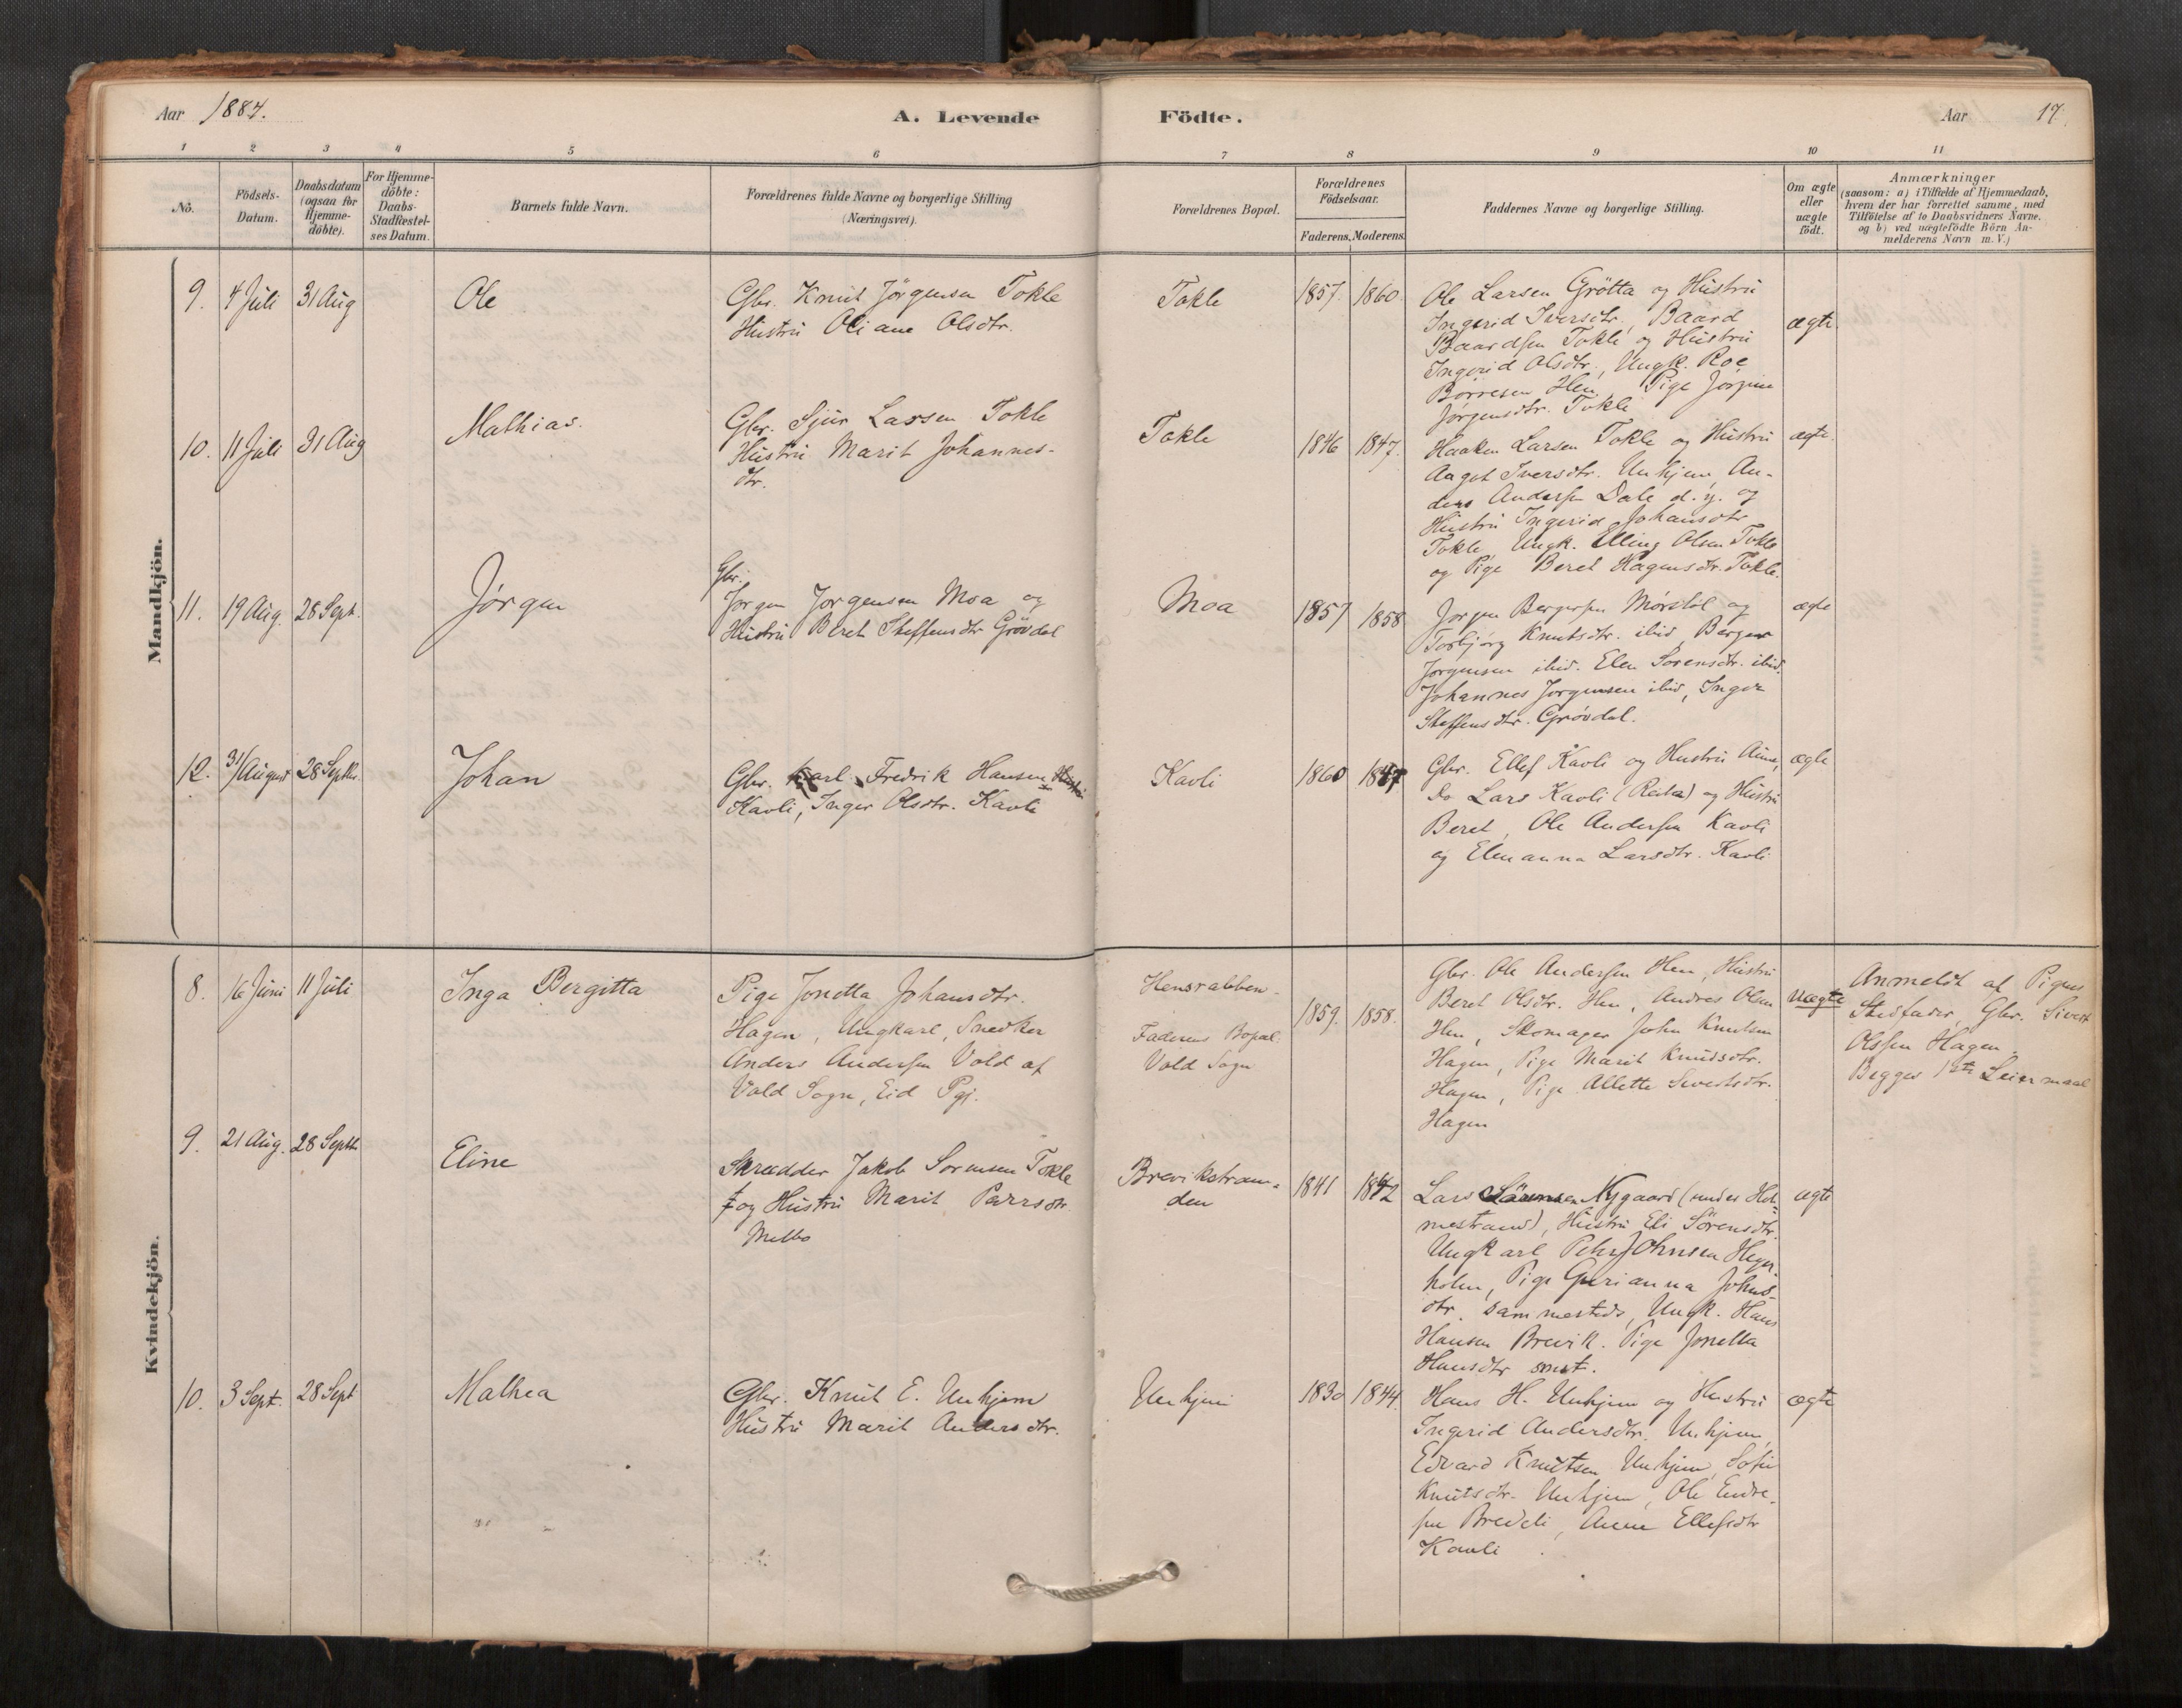 Aar 1884.
A. Levende
Födte.
Aar
17.
1
2
3
4
5
6
7
8
9
10
11
No.
Födsels-
Datum.
Daabsdatum
(ogsaa for
Hjemme-
döbte).
For Hjemme-
döbte:
Daabs-
Stadfæstel-
ses Datum.
Barnets fulde Navn.
Forældrenes fulde Navne og borgerlige Stilling
(Næringsvei).
Forældrenes Bopæl.
Forældrenes
Födselsaar.
Faderens. Moderens.
Faddernes Navne og borgerlige Stilling.
Om ægte
eller
uægte
födt.
Anmærkninger
(saasom: a) i Tilfælde af Hjemmedaab,
hvem der har forrettet samme, med
Tilföielse af to Daabsvidners Navne.
og b) ved uægtefödte Börn An-
melderens Navn m. V.)
Mandkjön.
9. 4 Juli 31 Aug
Ole
Gbr. Knut Jörgensen Tokle
Hustru Oliane Olsdtr.
Tokle
1857. 1860.
Ole Larsen Grötta og Hustru
Ingerid Iversdtr., Baard
Baardsen Tokle og Hustru
Ingerid Olsdtr., Ungk. Roe
Börresen Hen, Pige Jorgine
Jørgensdtr. Tokle
ægte
10. 11 Juli 31 Aug
Mathias.
Gbr. Sjur Larsen Tokle
Hustru Marit Johannes-
dtr.
Tokle
1846 1847.
Haaken Larsen Tokle og Hustru
Aagot Iversdtr. Unhjem, An-
ders Andersen Dale d. y. og
Hustru Ingerid Johansdtr
Tokle, Ungk. Elling Olsen Tokle
og Pige Beret Hagensdtr. Tokle.
ægte.
11. 19 Aug. 28 Sept.
Jørgen
Gbr.
Jørgen Jørgensen Moa og
Hustru Beret Steffensdtr Grövdal
Moa
1857 1858
Jørgen Bergersen Mørstöl og
Torbjörg Knutsdtr. ibid, Berger
Jørgensen ibid. Elen Sørensdtr. ibid.
Johannes Jorgensen ibid, Inger
Steffensdtr. Grøvdal.
ægte
12. 31/August 28 Septbr.
Johan
Gbr. Karl Fredrik Hansen Hustru
Kavli, Inger Olsdtr. Kavli
Kavli
1860 1847
Gbr. Ellef Kavli og Hustru Anne,
Do Lars Kavli (Reiten) og Hustru
Beret, Ole Andersen Kavli
og Elenanna Larsdtr. Kavli
ægte
Kvindekjön.
8. 16 Juni 11 Juli
Inga Bergitta
Pige Jonetta Johansdtr.
Hagen, Ungkarl, Snedker
Anders Andersen Vold af
Vold Sogn, Eid Pgj.
Hensrabben.
Faderens Bopæl.
Vold Sogn
1859. 1858.
Gbr. Ole Andersen Hen, Hustru
Beret Olsdtr. Hen, Andres Olsen
Hen, Skomager John Knutsen
Hagen, Pige Marit Knudsdtr.
Hagen, Pige Allette Sivertsdtr.
Hagen
uægte
Anmeldt af Pigens
Stedfader, Gbr. Sivert
Olssen Hagen.
Begges 1ste Leiermaal
9. 21 Aug. 28 Septbr
Eline
Skrædder Jakob Sorensen Tokle
og Hustru Marit
Melbo
Brevikstran-
den
1841 1842
Lars Sörensen Nygaard (under Hol-
mestrand), Hustru Eli Sörensdtr.
Ungkarl Peter Johnsen Hegr-
holm, Pige Gurianna Johns-
dtr. sammesteds, Ungk. Hans
Hansen Brevik. Pige Jonetta
Hansdtr smst.
ægte
10. 3 Sept. 28 Sept
Mathea
Gbr. Knut E. Unhjem
Hustru Marit Andersdtr.
Unhjem
1830 1844.
Hans H. Unhjem og Hustru
Ingerid Andersdtr. Unhjem,
Edvard Knutsen Unhjem, Sofie
Knutsdtr. Unhjem, Ole Endre-
sen Bredeli, Anne Ellefsdtr
Kavli.
ægte